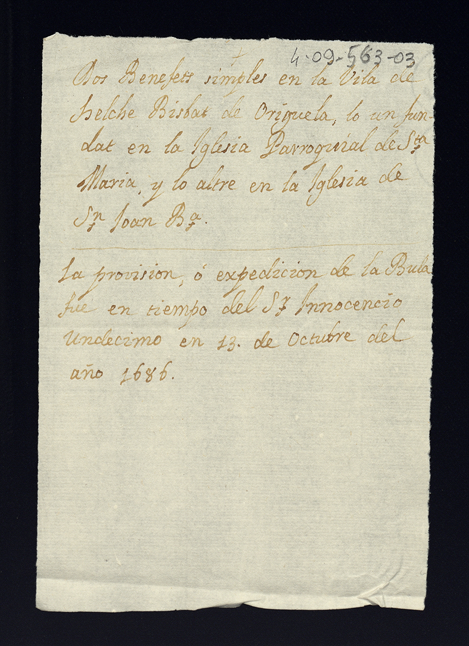 4.09-563-03
Dos Benefets simples en la Vila de
Helche Bisbat de Origuela, lo un fun-
dat en la Iglesia Parroquial de Sta
Maria, y lo altre en la Iglesia de
Sn Joan Ba.
La provision, ó expedicion de la Bula
fue en tiempo del Sr Innocencio
Undecimo en 13. de Octubre del
año 1686.